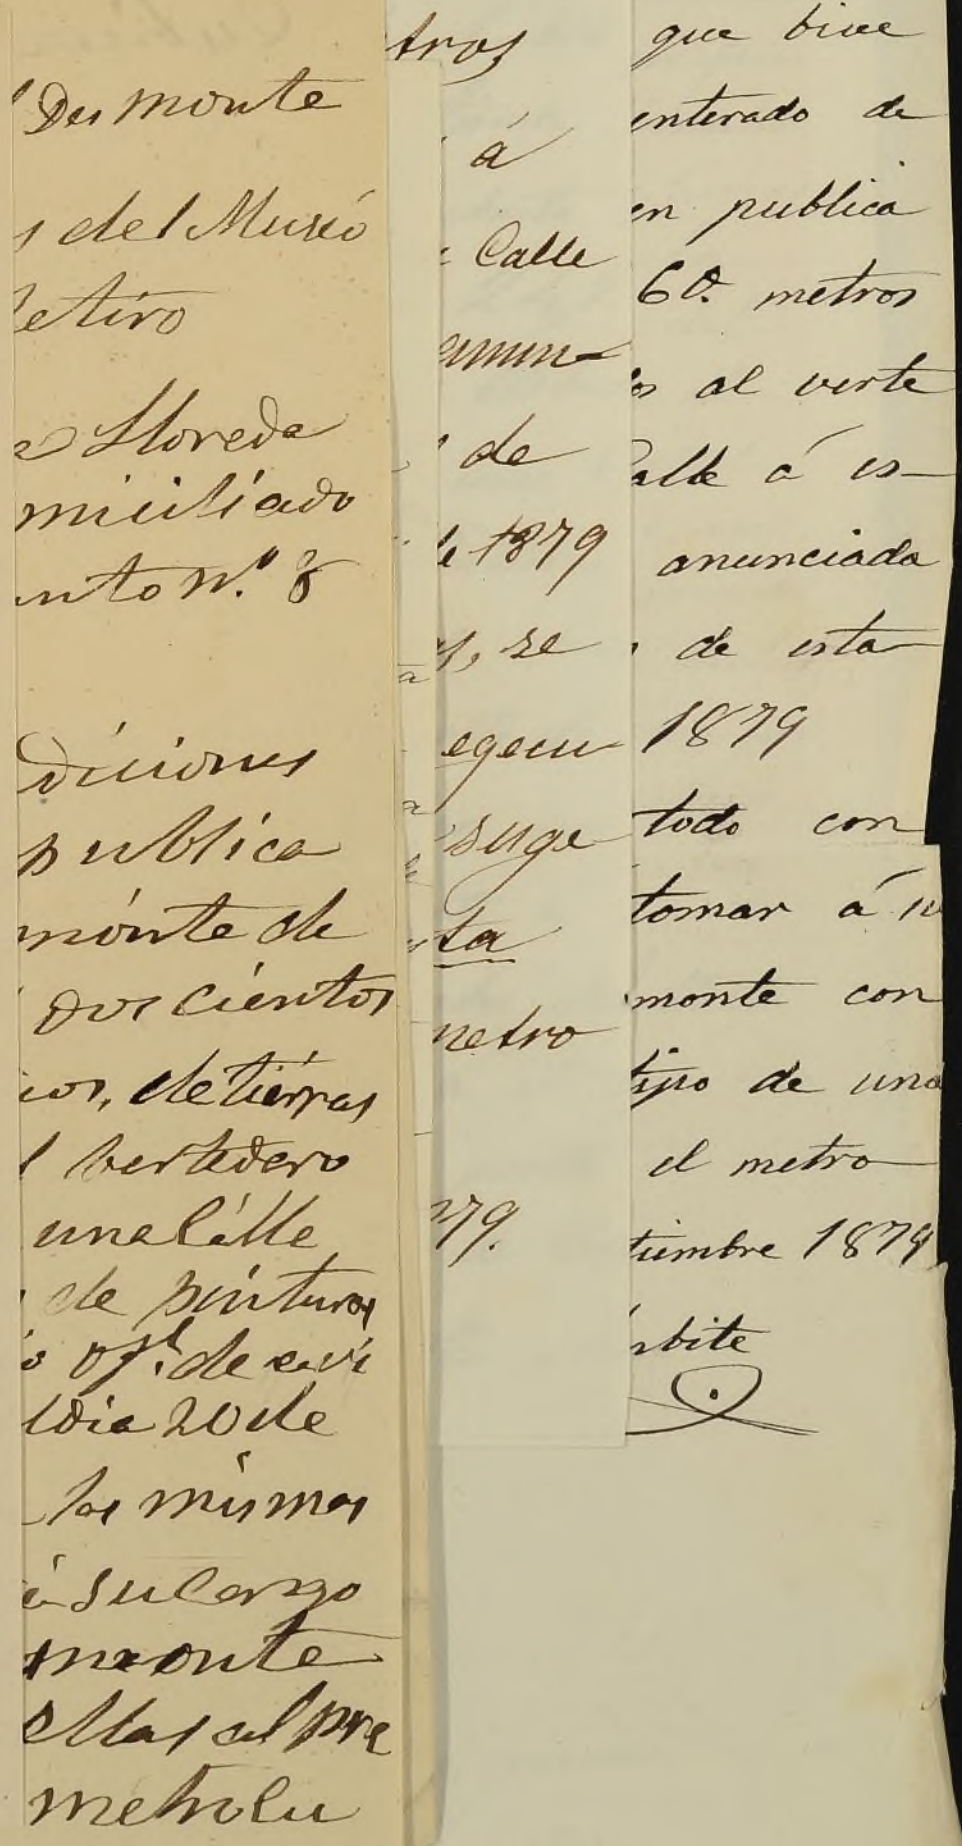 Desmonte
s del Museó
etiro
Lloreda
miciliado
ento n.º 8
diciones
publica
monte de
doscientos
cos, de tierras
l bertedero
una Cálle
de pinturas
o ofl. de abi
l dia 20 de
las mismas
á su Cargo
monte
ellas al pre
metrocu
tros
á
Calle
anun-
de
de 1879
s, se
egecu
suge
ta
metro
79.
que bive
enterado de
en publica
60. metros
os al verte
alle á es-
anunciada
de esta
1879
todo con
tomar á su
monte con
tipo de una
el metro
tiembre 1879
rbite